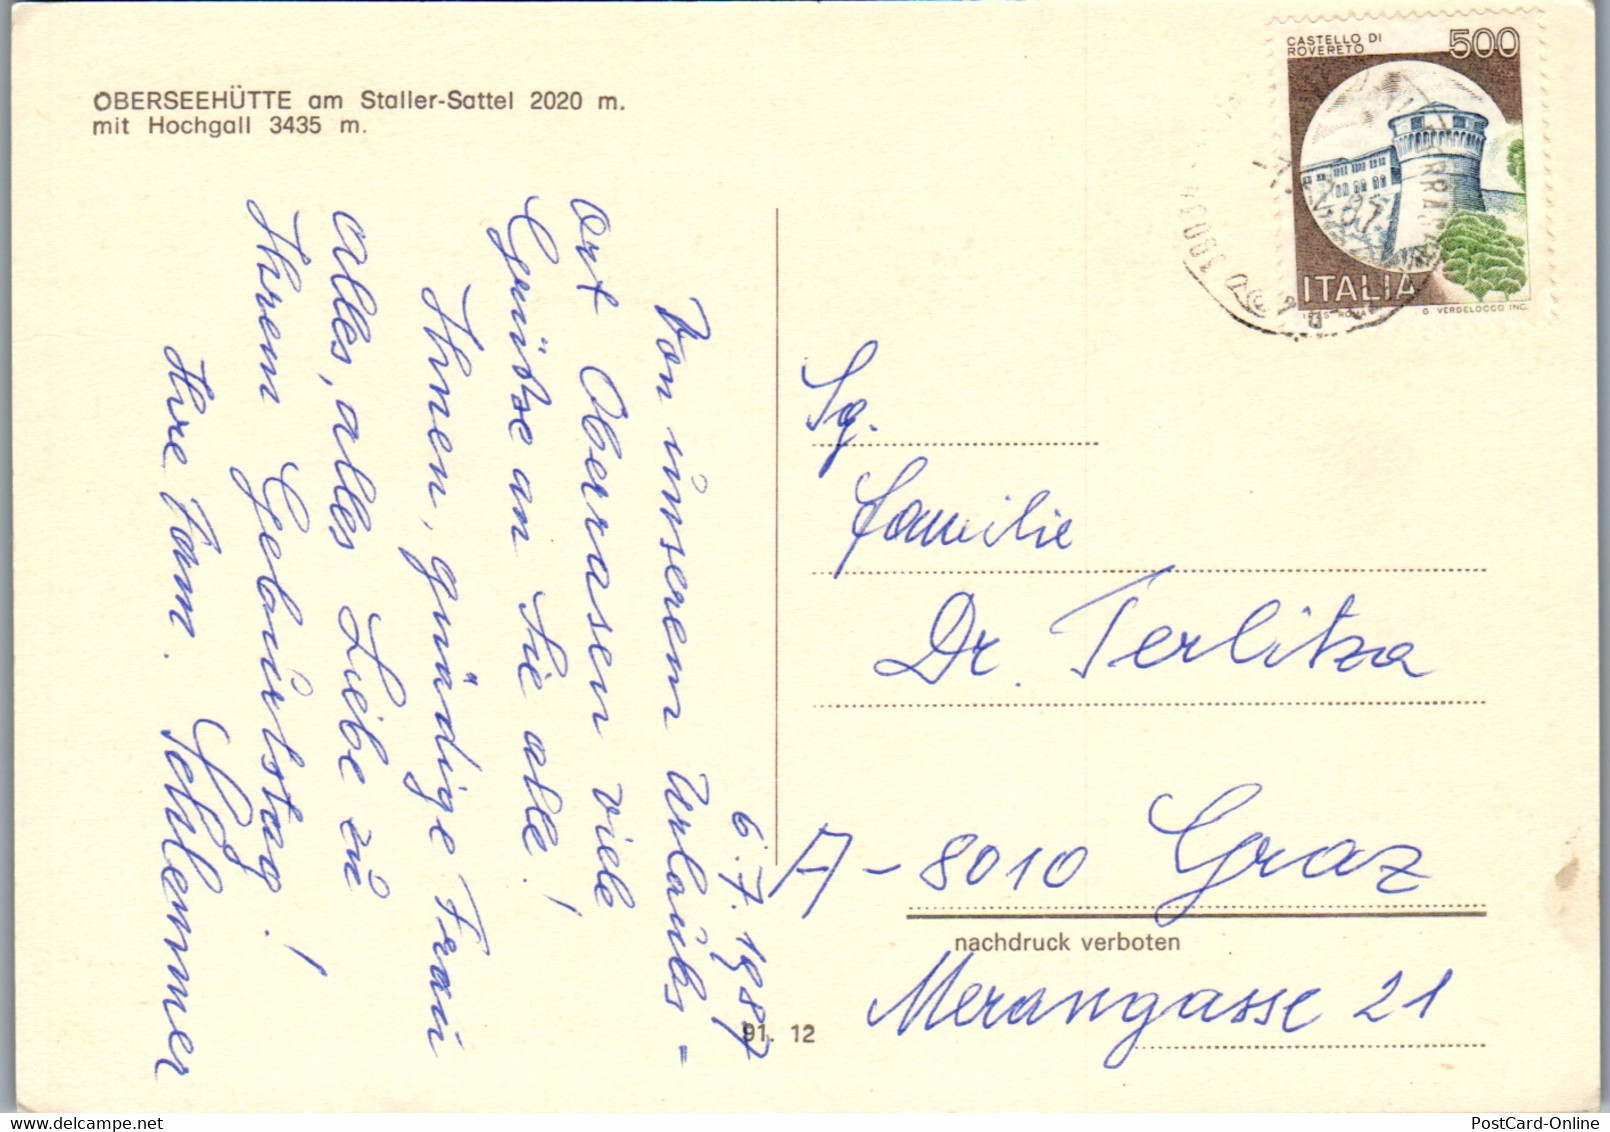 OBERSEEHÜTTE am Staller-Sattel 2020 m.
mit Hochgall 3435 m.
CASTELLO DI
ROVERETO
500
ITALIA
ROMA
G VERDELOCCO INC.
6.7.1987
Von unserem Urlaubs-
ort Oberrasen viele
Grüße an Sie alle!
Ihnen, gnädige Frau
alles, alles Liebe zu
Ihrem Geburtstag!
Ihre Fam. Schlemmer
Sg.
Familie
Dr. Terlitza
A-8010 Graz
nachdruck verboten
Merangasse 21
91. 12
PostCard-Online